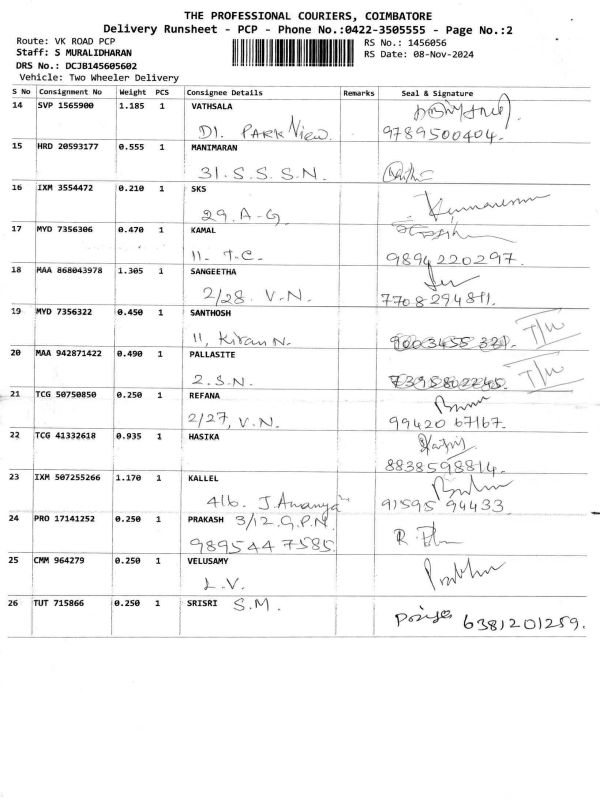 THE PROFESSIONAL COURIERS, COIMBATORE
Delivery Runsheet - PCP - Phone No.:0422-3505555 - Page No.:2
Route: VK ROAD PCP
RS No.: 1456056
Staff: S MURALIDHARAN
RS Date: 08-Nov-2024
DRS No.: DCJB145605602
Vehicle: Two Wheeler Delivery
S No Consignment No Weight PCS Consignee Details Remarks Seal & Signature
14 SVP 1565900 1.185 1 VATHSALA
D1. PARK View. 9789500404.
15 HRD 20593177 0.555 1 MANIMARAN
31. S. S. S. N.
16 IXM 3554472 0.210 1 SKS
29. A-G.
17 MYD 7356306 0.470 1 KAMAL
11. T-C. 9894220297.
18 MAA 868043978 1.305 1 SANGEETHA
2/28. V.N. 7708294811.
19 MYD 7356322 0.450 1 SANTHOSH
11, Kiran N. T/W
20 MAA 942871422 0.490 1 PALLASITE
2. S.N. T/W
21 TCG 50750850 0.250 1 REFANA
2/27, V.N. 99420 67167.
22 TCG 41332618 0.935 1 HASIKA
8838598814.
23 IXM 507255266 1.170 1 KALLEL
416. J. Ananya 91595 94433
24 PRO 17141252 0.250 1 PRAKASH 3/12. G.P.N.
9895447585.
25 CMM 964279 0.250 1 VELUSAMY
L.V.
26 TUT 715866 0.250 1 SRISRI S.M.
6381201259.